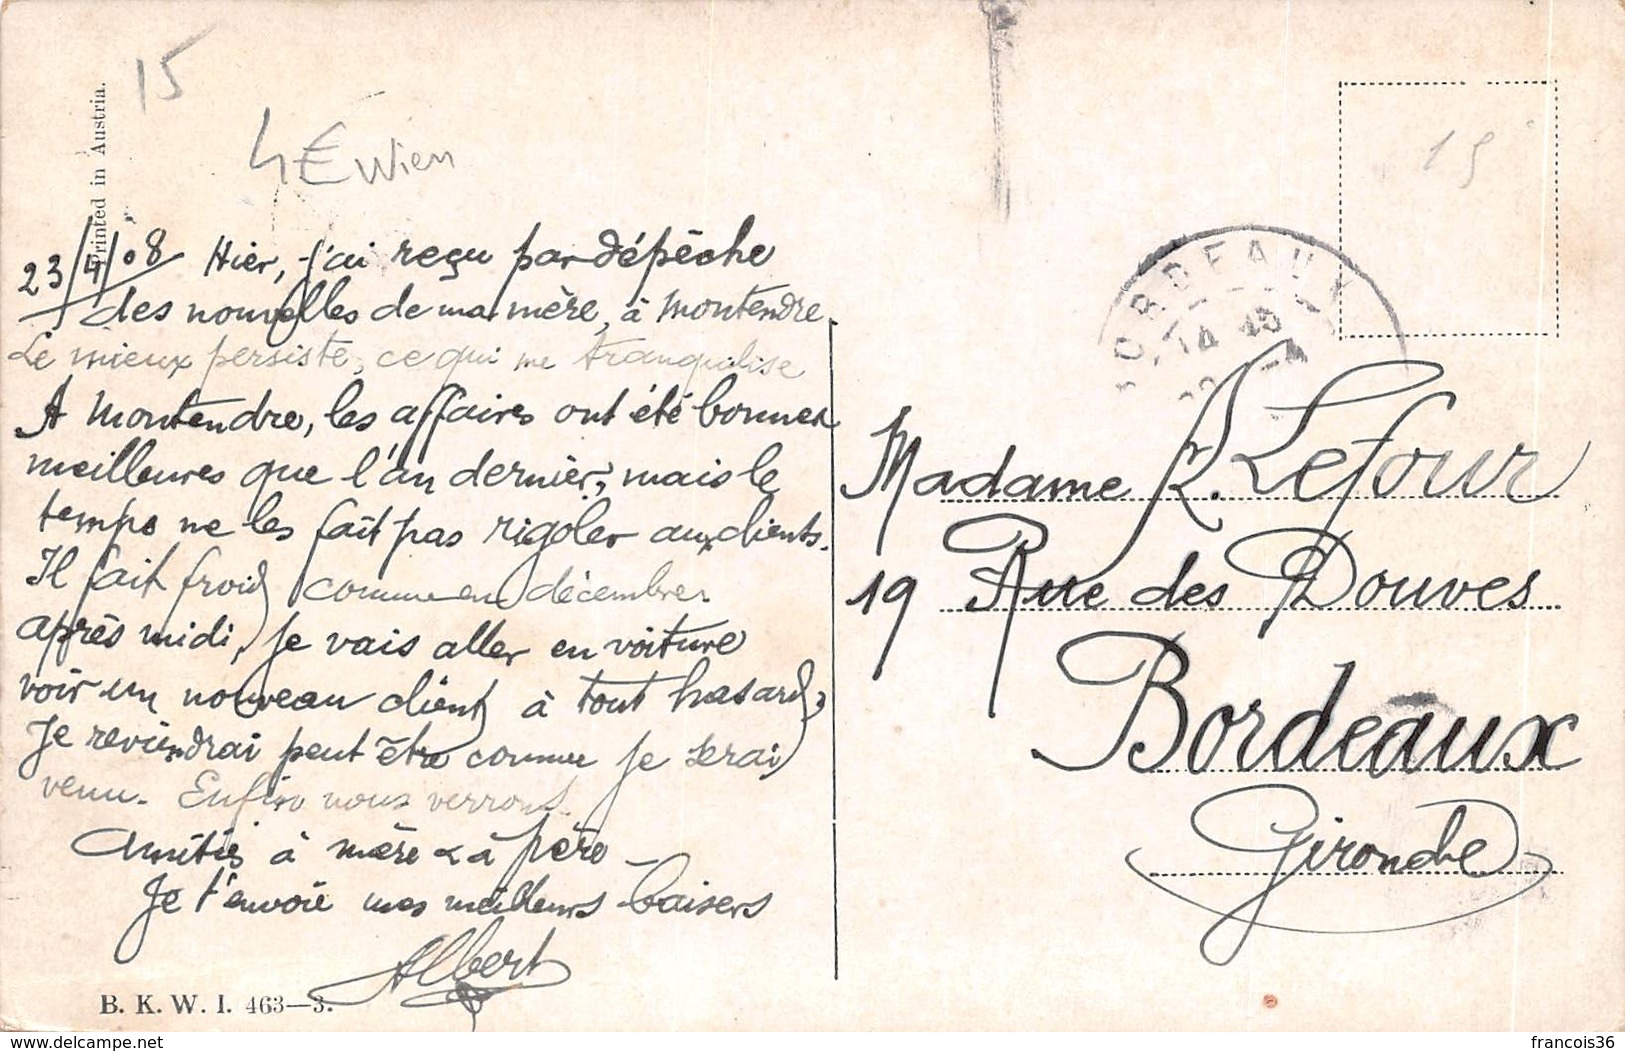 15
Printed in Austria.
4€ Wien
15
23/4/08 Hier, j'ai reçu par dépêche
des nouvelles de ma mère, à Montendre
Le mieux persiste, ce qui me tranquilise
A Montendre, les affaires ont été bonnes
meilleures que l'an dernier, mais le
temps ne les fait pas rigoler aux clients.
Il fait froid comme en décembre.
après midi, je vais aller en voiture
voir un nouveau client à tout hasard,
Je reviendrai peut être comme je serai
venu. Enfin nous verrons.
Amitiés à mère & à père
Je t'envoie mes meilleurs baisers
Albert
B. K. W. I. 463—3.
BORDEAUX
14 45
Madame R. Lefour
19 Rue des Douves
Bordeaux
Gironde
https://www.delcampe.net
francois36